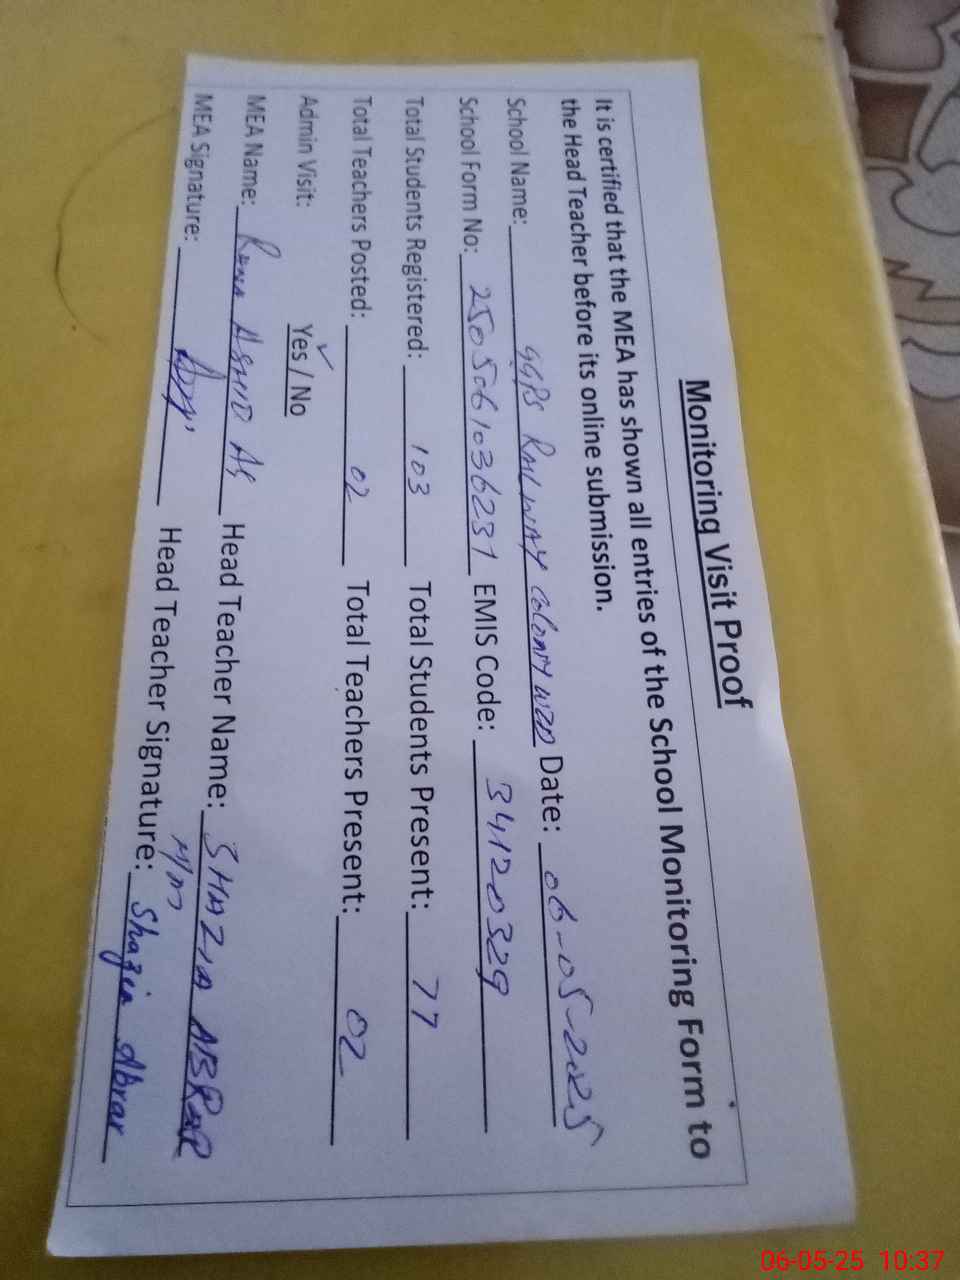 Monitoring Visit Proof
It is certified that the MEA has shown all entries of the School Monitoring Form to
the Head Teacher before its online submission.
School Name: GGPS RAILWAY COLONY WZD Date: 06-05-2025
School Form No: 2505061036231 EMIS Code: 34120329
Total Students Registered: 103 Total Students Present: 77
Total Teachers Posted: 02 Total Teachers Present: 02
Admin Visit: Yes / No
MEA Name: RANA ASHID Head Teacher Name: SHAZIA ABRAR
MEA Signature: Head Teacher Signature: Shazia Abrar
06-05-25 10:37